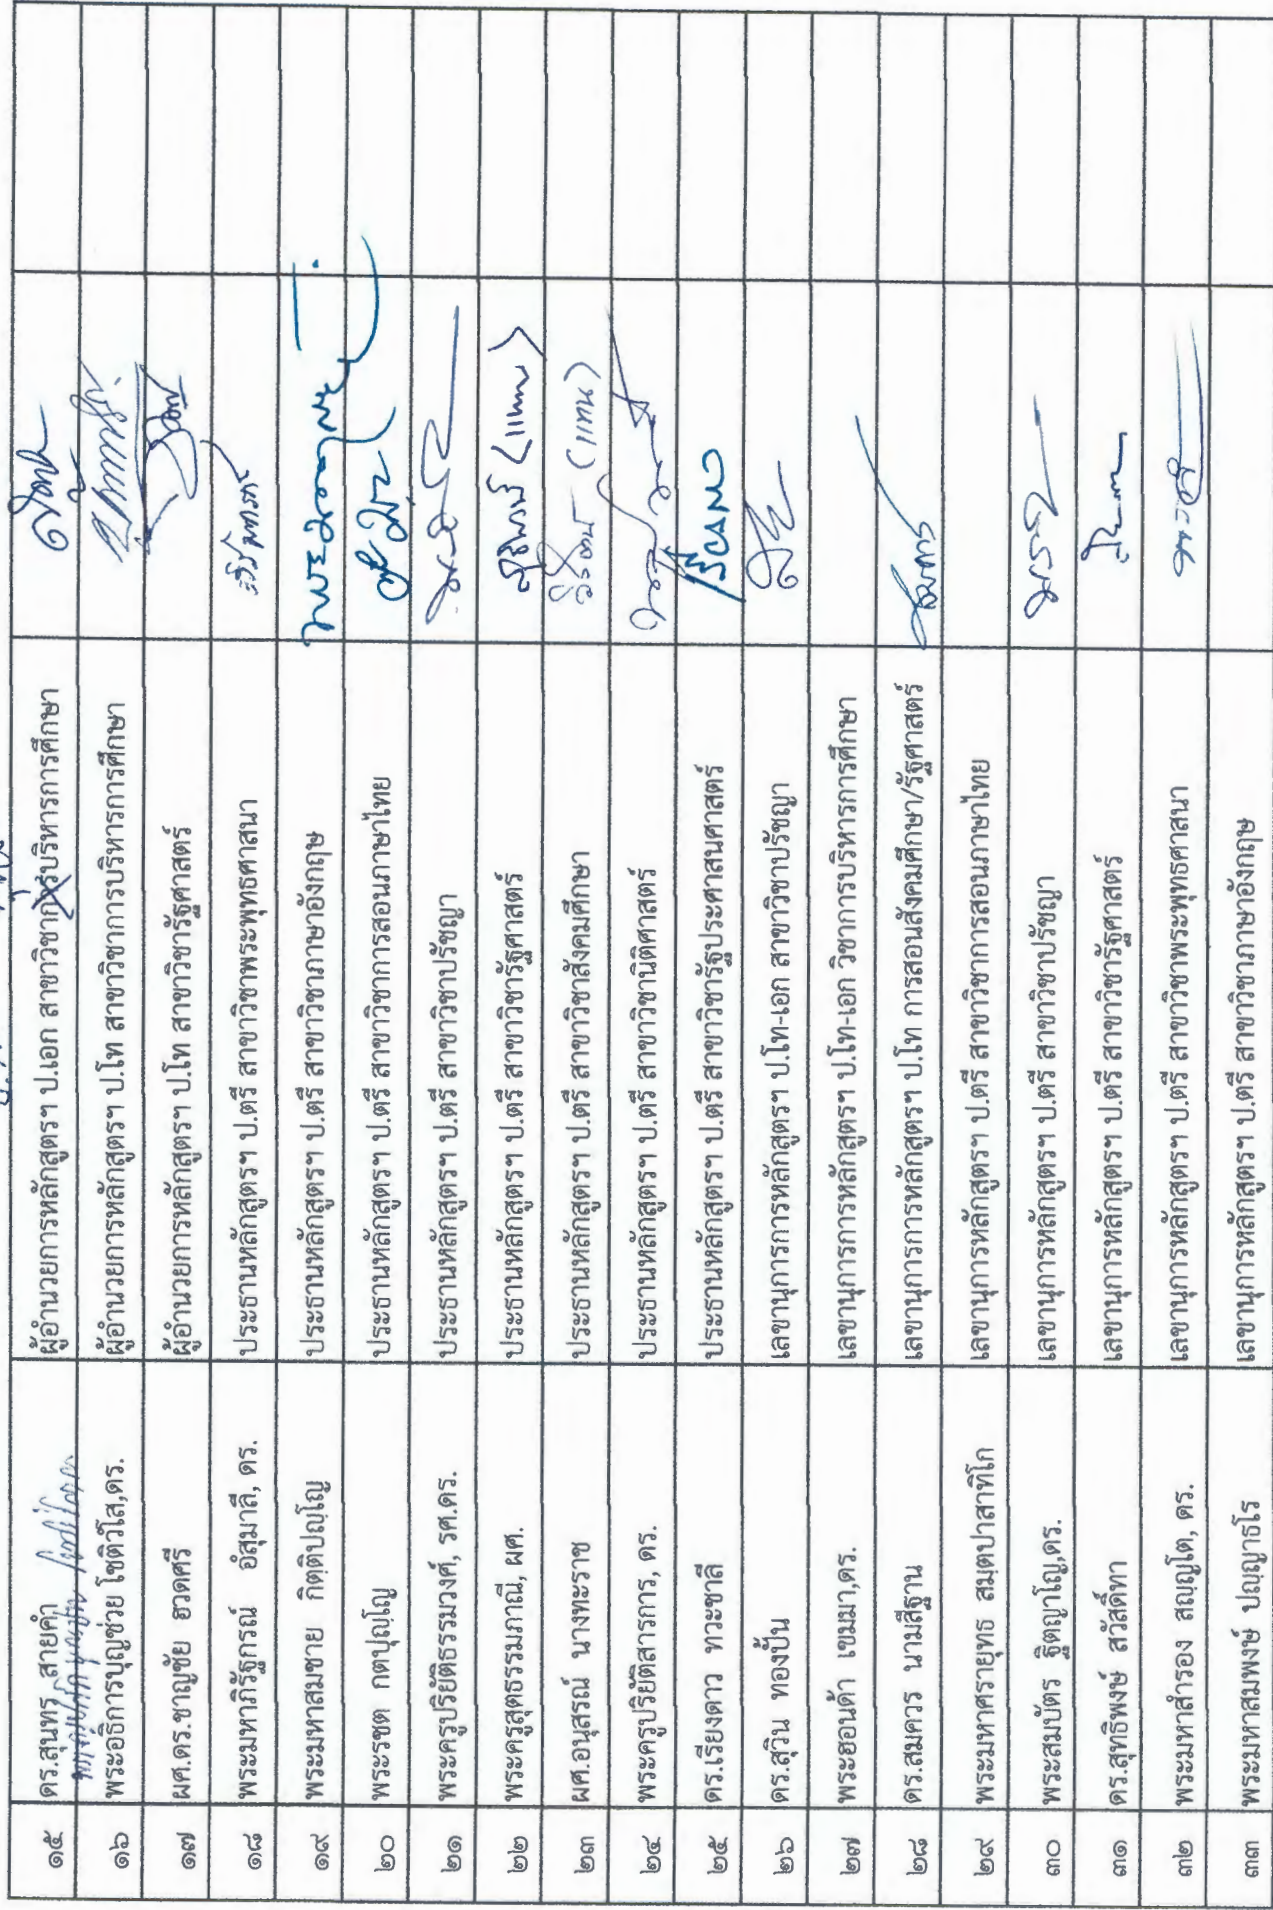 ๑๕ ดร.สุนทร สายคำ ผู้อำนวยการหลักสูตรฯ ป.เอก สาขาวิชาการบริหารการศึกษา
๑๖ พระอธิการบุญช่วย โชติวํโส,ดร. ผู้อำนวยการหลักสูตรฯ ป.โท สาขาวิชาการบริหารการศึกษา
๑๗ ผศ.ดร.ชาญชัย ฮวดศรี ผู้อำนวยการหลักสูตรฯ ป.โท สาขาวิชารัฐศาสตร์
๑๘ พระมหาภิรัฐกรณ์ อํสุมาลี, ดร. ประธานหลักสูตรฯ ป.ตรี สาขาวิชาพระพุทธศาสนา
๑๙ พระมหาสมชาย กิตฺติปญฺโญ ประธานหลักสูตรฯ ป.ตรี สาขาวิชาภาษาอังกฤษ
๒๐ พระรชต กตปุญฺโญ ประธานหลักสูตรฯ ป.ตรี สาขาวิชาการสอนภาษาไทย
๒๑ พระครูปริยัติธรรมวงศ์, รศ.ดร. ประธานหลักสูตรฯ ป.ตรี สาขาวิชาปรัชญา
๒๒ พระครูสุตธรรมภาณี, ผศ. ประธานหลักสูตรฯ ป.ตรี สาขาวิชารัฐศาสตร์ (แทน)
๒๓ ผศ.อนุสรณ์ นางทะราช ประธานหลักสูตรฯ ป.ตรี สาขาวิชาสังคมศึกษา (แทน)
๒๔ พระครูปริยัติสารการ, ดร. ประธานหลักสูตรฯ ป.ตรี สาขาวิชานิติศาสตร์
๒๕ ดร.เรียงดาว ทวะชาลี ประธานหลักสูตรฯ ป.ตรี สาขาวิชารัฐประศาสนศาสตร์
๒๖ ดร.สุวิน ทองปั้น เลขานุการการหลักสูตรฯ ป.โท-เอก สาขาวิชาปรัชญา
๒๗ พระฮอนด้า เขมมา,ดร. เลขานุการการหลักสูตรฯ ป.โท-เอก วิชาการบริหารการศึกษา
๒๘ ดร.สมควร นามสีฐาน เลขานุการการหลักสูตรฯ ป.โท การสอนสังคมศึกษา/รัฐศาสตร์
๒๙ พระมหาศรายุทธ สมฺตปาสาทิโก เลขานุการหลักสูตรฯ ป.ตรี สาขาวิชาการสอนภาษาไทย
๓๐ พระสมบัตร ฐิตญาโญ,ดร. เลขานุการหลักสูตรฯ ป.ตรี สาขาวิชาปรัชญา
๓๑ ดร.สุทธิพงษ์ สวัสดิ์ทา เลขานุการหลักสูตรฯ ป.ตรี สาขาวิชารัฐศาสตร์
๓๒ พระมหาสำรอง สญฺญโต, ดร. เลขานุการหลักสูตรฯ ป.ตรี สาขาวิชาพระพุทธศาสนา
๓๓ พระมหาสมพงษ์ ปญฺญาธโร เลขานุการหลักสูตรฯ ป.ตรี สาขาวิชาภาษาอังกฤษ